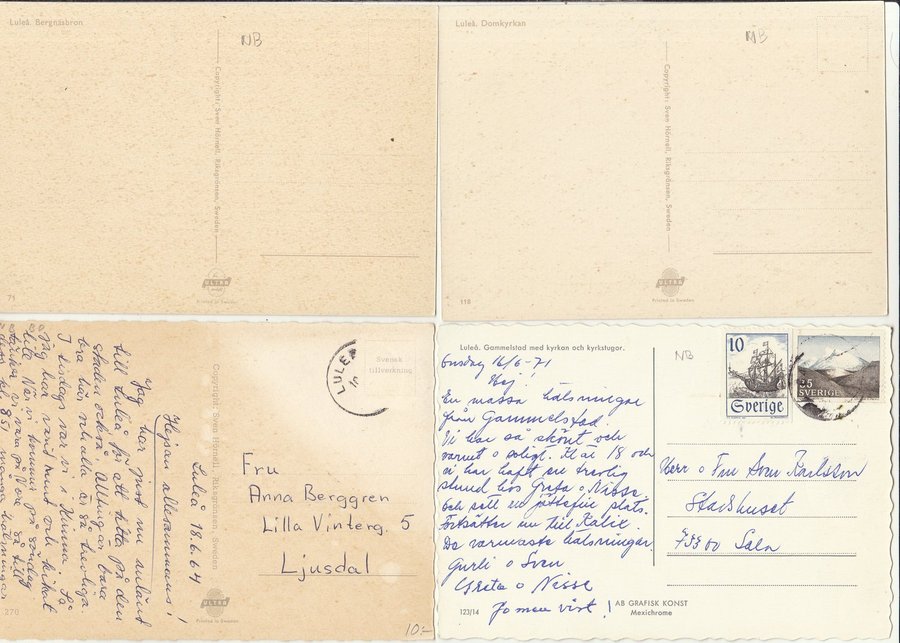 Luleå. Bergnäsbron
NB
Copyright: Sven Hörnell, Riksgränsen, Sweden
ULTRA
Printed in Sweden
71
Luleå. Domkyrkan
NB
Copyright: Sven Hörnell, Riksgränsen, Sweden
ULTRA
Printed in Sweden
118
Luleå 18.6.64
Hejsan allesammans!
Jag har rest nu ända
till Luleå för att titta på den
staden också. Allting är bara
bra här och alla är så trevliga
I tisdags var vi i Kemi. Så
jag har varit runt och kikat
När vi kommer på söndag
kl. 8.51
Copyright: Sven Hörnell, Riksgränsen, Sweden
LULEÅ
Svensk
tillverkning
Fru
Anna Berggren
Lilla Vinterg. 5
Ljusdal
ULTRA
Printed in Sweden
270
10:-
Luleå. Gammelstad med kyrkan och kyrkstugor.
NB
10
Sverige
25
SVERIGE
Onsdag 16/6-71
Hej!
En massa hälsningar
från Gammelstad.
Vi har så skönt och
varmt o soligt. Kl är 18 och
vi har haft en trevlig
stund hos Greta o Nisse
och sett en jättefin plats.
Fortsätter nu till Kalix.
De varmaste hälsningar
Gurli o Sven
Greta o Nisse
Jo men visst!
Herr o Fru Sven Karlsson
Stadshuset
733 00 Sala
123/14
AB GRAFISK KONST
Mexichrome